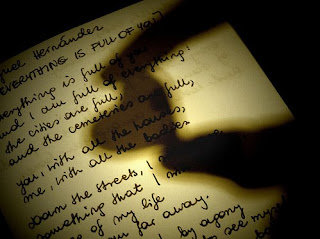 guel Hernández
(EVERYTHING IS FULL OF YOU)
erything is full of you
and I am full of everything:
the cities are full,
and the cemeteries are full,
you, with all the houses,
me, with all the bodies
down the streets, I
something that I
of my life
far away.
by agony
to see myself